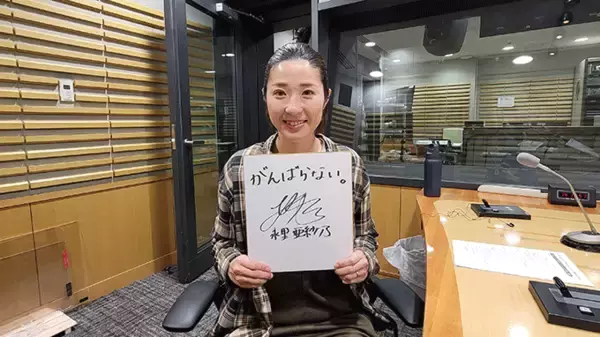 がんばらない。
永里 亜紗乃